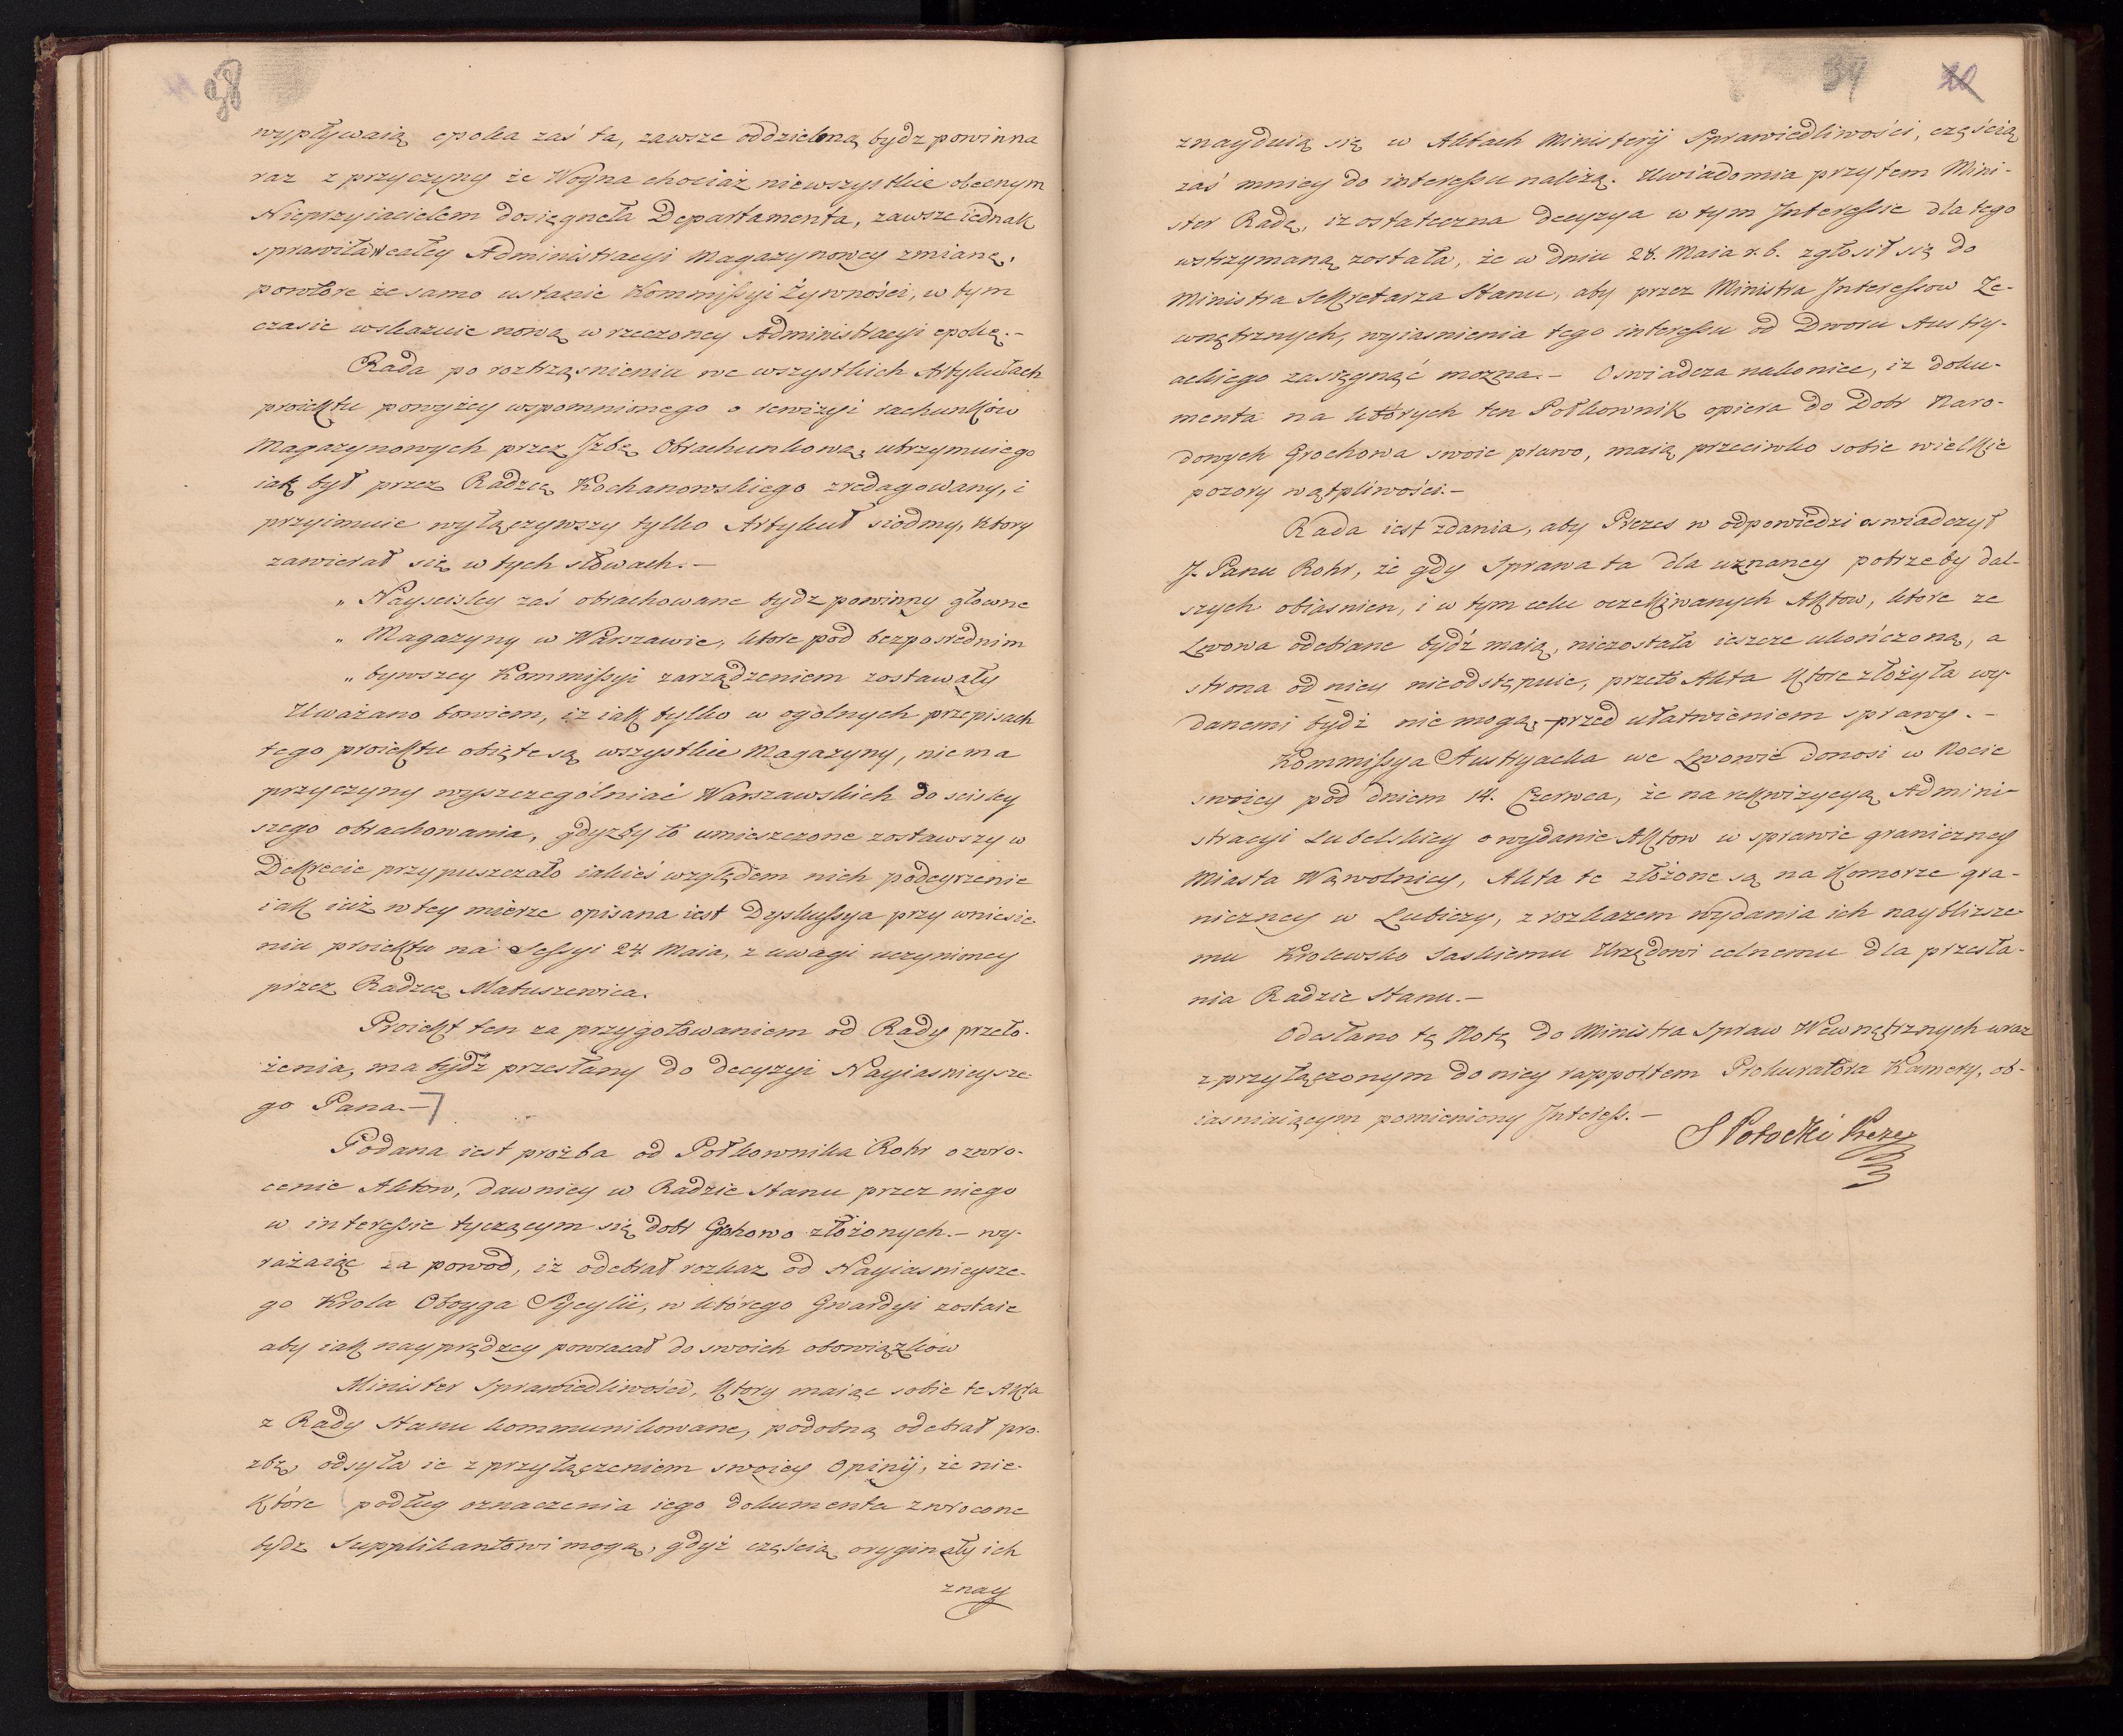 98
wypływaią epoka zaś ta, zawsze oddzieloną bydz powinna
raz z przyczyny że Woyna chociaż niewszystkie obecnym
Nieprzyiacielem dosięgneła Departamenta, zawsze iednak
sprawiła w całey Administracyi Magazynowey zmianę,
powtore że samo ustanie Kommissyi Żywności, w tym
czasie wskazuie nową w rzeczoney Administracyi epokę.-
Rada po roztrząsnieniu we wszystkich Artykułach
proiektu powyżey wspomnionego o rewizyi rachunków
Magazynowych przez Jzbę Obrachunkową, utrzymuie go
iak był przez Radzcę Kochanowskiego zredagowany, i
przyimuie wyłączywszy tylko Artykuł siodmy, ktory
zawierał się w tych słowach.-
„ Nayscisley zaś obrachowane bydz powinny głowne
„ Magazyny w Warszawie, ktore pod bezposrednim
„ bywszey Kommissyi zarządzeniem zostawały
Uważano bowiem, iz iak tylko w ogolnych przepisach
tego proiektu obięte są wszystkie Magazyny, nie ma
przyczyny wyszczególniać Warszawskich do scisley
szego obrachowania, gdyzby to umieszczone zostawszy w
Dekrecie przypuszczało iakieś względem nich podeyrzenie
iak iuż w tey mierze opisana iest Dyskussya przy wniesie
niu proiektu na Sessyi 24 Maia, z uwagi uczynioney
przez Radzcę Matuszewica.
Proiekt ten za przygotowaniem od Rady przeło-
żenia, ma bydź przesłany do decyzyi Nayiasnieysze
go Pana.-
Podana iest prożba od Połkownika Rohr o zwro-
cenie Aktow, dawniey w Radzie Stanu przez niego
w interessie tyczącym się dobr Grochowo złożonych.- wy-
rażaiąc za powod, iz odebrał rozkaz od Nayiasnieysze-
go Krola Oboyga Sycylii, w którego Gwardyi zostaie
aby iak nayprędzey powracał do swoich obowiązkow
Minister Sprawiedliwości, ktory maiąc sobie te Akta
z Rady Stanu kommunikowane, podobną odebrał pro-
zbę, odsyła ie z przyłączeniem swoiey Opinij, że nie-
które podług oznaczenia iego dokumenta zwrocone
bydz Supplikantowi mogą, gdyż częścią oryginały ich
znay
34
znayduią się w Aktach Ministerij Sprawiedliwości, częścią
zaś mniey do interessu naliżą. Uwiadomia przytem Mini-
ster Radę, iz ostateczna decyzya w tym Interessie dla tego
wstrzymaną została, że w dniu 28. Maia r. b. zgłosił się do
Ministra Sekretarza Stanu, aby przez Ministra Interessow Ze-
wnętrznych, wyiasnienia tego interessu od Dworu Austry-
ackiego zasięgnąć mozna.- Oswiadcza nakoniec, iz doku-
menta na których ten Połkownik opiera do Dobr Naro-
dowych Grochowa swoie prawo, maią przeciwko sobie wielkie
pozory wątpliwości.-
Rada iest zdania, aby Prezes w odpowiedzi oswiadczył
J. Panu Rohr, że gdy Sprawa ta dla uznaney potrzeby dal-
szych obiasnien, i w tym celu oczekiwanych Aktow, ktore ze
Lwowa odebrane bydź maią, niezostała ieszcze ukończoną, a
strona od niey nieodstępuie, przeto Akta ktore złożyła wy-
danemi bydż nie mogą, przed ułatwieniem sprawy.-
Kommissya Austryacka we Lwowie donosi w Nocie
swoiey pod dniem 14. Czerwca, że na rekwizycyą Admini-
stracyi Lubelskiey o wydanie Aktow w sprawie graniczney
Miasta Wąwolnicy, Akta te złożone są na Komorze gra-
niczney w Lubiczy, z rozkazem wydania ich nayblizsze-
mu Krolewsko Saskiemu Urzędowi celnemu dla przesła-
nia Radzie Stanu.-
Odesłano tę Notę do Ministra Spraw Wewnętrznych wraz
z przyłączonym do niey rapportem Prokuratora Kamery, ob-
iasniaiącym pomieniony Interess.-
S Potocki Prezes